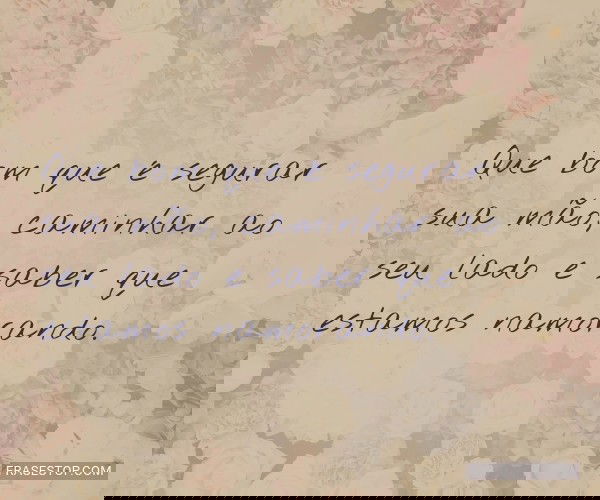 Que bom que é segurar
sua mão, caminhar ao
seu lado e saber que
estamos namorando.
FRASESTOP.COM